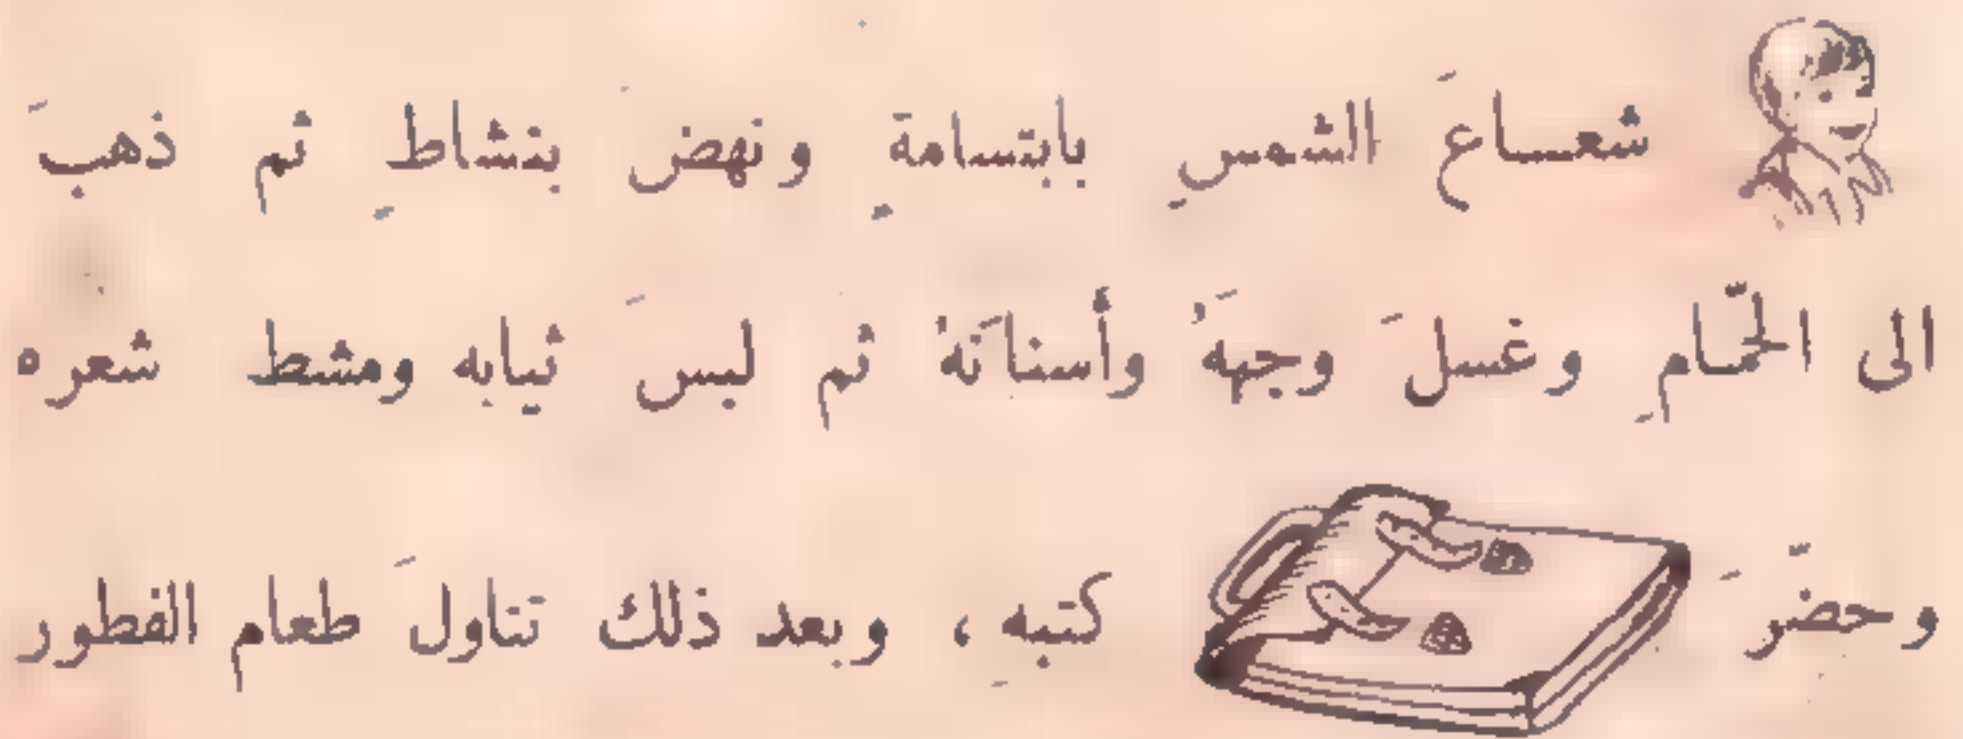 شعاعَ الشمسِ بابتسامةٍ ونهضَ بنشاطٍ ثم ذهبَ
الى الحمّامِ وغسلَ وجههَُ وأسنانَهُ ثم لبسَ ثيابه ومشط شعره
وحضّرَ كتبهِ ، وبعد ذلك تناولَ طعام الفطور